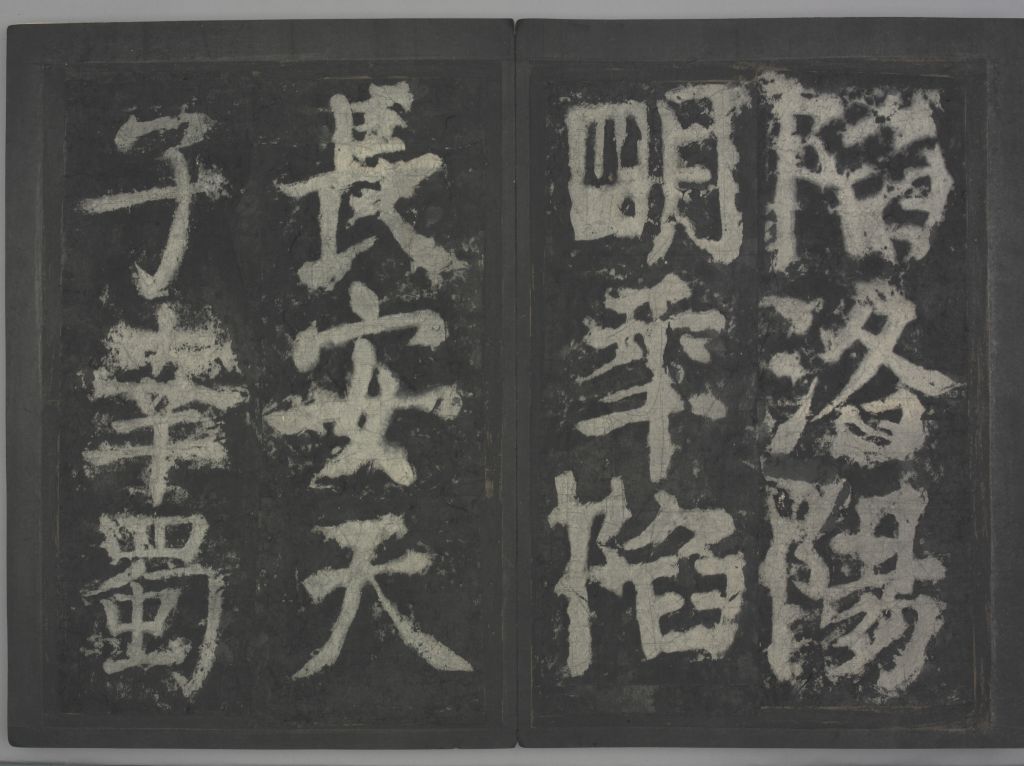 陷洛陽
明年陷
長安天
子幸蜀